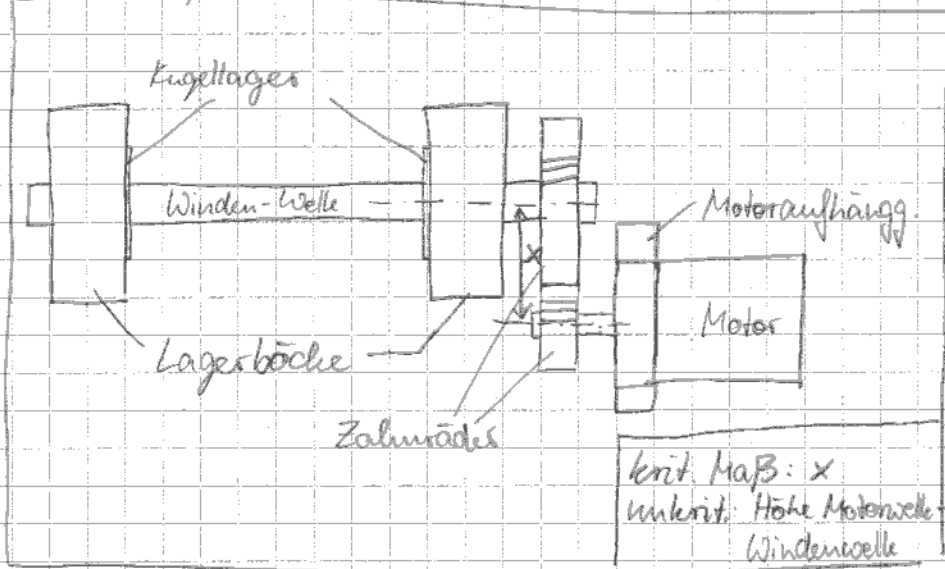 Kugellager
Winden-Welle
Motoraufhängg.
x
Motor
Lagerböcke
Zahnräder
krit. Maß: x
unkrit.: Höhe Motorwelle +
Windenwelle